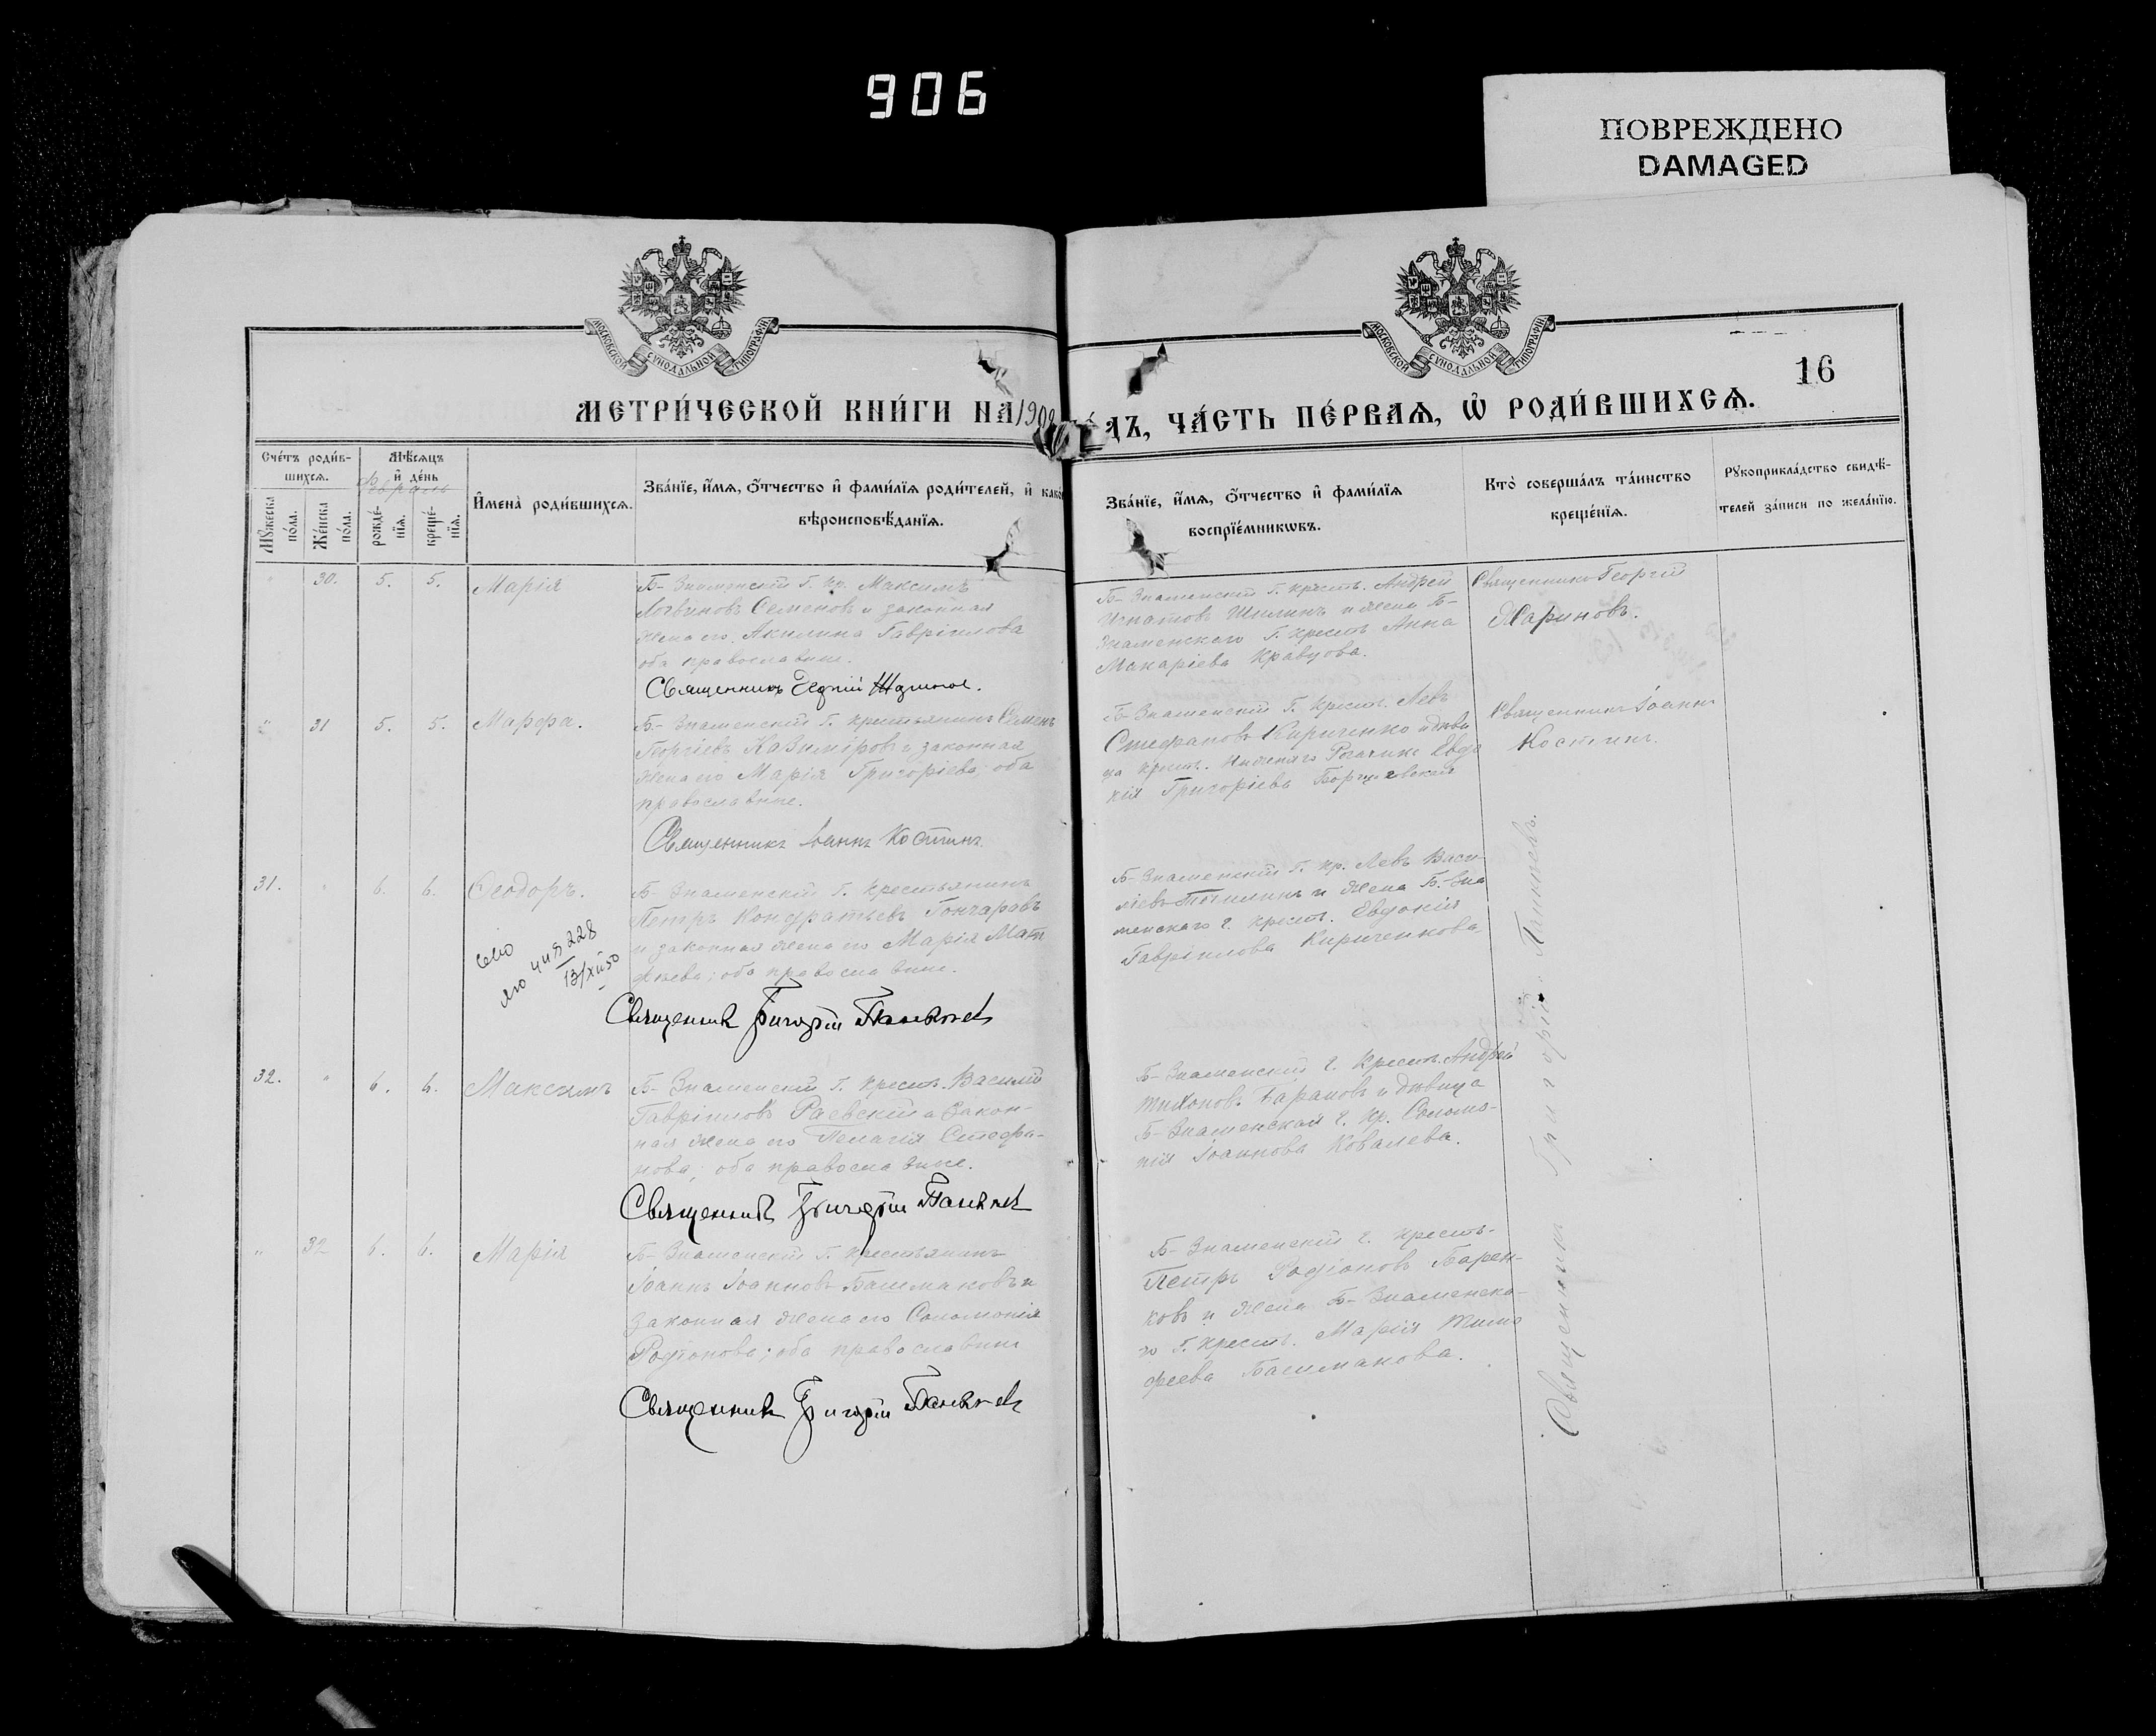 906
ПОВРЕЖДЕНО
DAMAGED
МОСКОВСКОЙ СУНОДАЛЬНОЙ ТИПОГРАФІИ.
МОСКОВСКОЙ СУНОДАЛЬНОЙ ТИПОГРАФІИ.
16
МЕТРИ́ЧЕСКОЙ КНИ́ГИ НА 1902
ДЪ, ЧА́СТЬ ПЕ́РВАѦ, Ѡ҆ РОДИ́ВШИХСѦ.
Сче́тъ роди́в-
шихсѧ.
Мꙋжеска по́ла.
Же́нска по́ла.
Мѣ́сѧцъ
и҆ де́нь
Февраль
рожде́-
нїѧ.
креще́-
нїѧ.
И҆мена̀ роди́вшихсѧ.
Зва́нїе, и҆́мѧ, ѻ҆́тчество и҆ фами́лїѧ роди́телей, и҆ како
вѣроисповѣ́данїѧ.
Зва́нїе, и҆́мѧ, ѻ҆́тчество и҆ фами́лїѧ
воспрїе́мникѡвъ.
Кто̀ соверша́лъ та́инство
креще́нїѧ.
Рꙋкоприкла́дство свидѣ́-
телей за́писи по жела́нїю.
30. 5. 5. Марія
Б-Знаменскій Г. кр. Максимъ
Логвиновъ Семеновъ и законная
жена его Акилина Гавріилова
оба православные.
Священникъ Георгій
Б-Знаменскій Г. крест. Андрей
Игнатовъ Шилинъ и жена Б-
Знаменскаго Г. крест. Анна
Макаріева Кравцова.
Священникъ Георгій
Жариновъ.
" 31 5. 5. Марфа.
Б-Знаменскій Г. крестьянинъ Семенъ
Георгіевъ Казиміровъ и законная
жена его Марія Григоріева; оба
православные.
Священникъ Іоаннъ Костинъ.
Б-Знаменскій Г. крест. Левъ
Стефановъ Кириченко и дѣви
ца крест. Нижняго Рогачика Евдо
кія Григоріева Борщевская
Священникъ Іоаннъ
Костинъ.
31. " 6. 6. Ѳеодоръ.
Б-Знаменскій Г. крестьянинъ
Петръ Кондратьевъ Гончаровъ
и законная жена его Марія Мат
ѳеева; оба православные.
228
13/XII 50
Священникъ Григорій Панкеев
Б-Знаменскій Г. кр. Левъ Васи-
ліевъ и жена Б-Зна
менскаго Г. крест. Евдокія
Гавріилова Кириченкова.
32. " 6. 6. Максимъ
Б-Знаменскій Г. крест. Василій
Гавріиловъ Раевскій и закон-
ная жена его Пелагія Стефа-
нова; оба православные.
Священникъ Григорій Панкеев
Б-Знаменскій Г. крест. Андрей
Тихоновъ Барановъ и дѣвица
Б-Знаменская Г. кр. Соломо-
нія Іоаннова Ковалева.
" 32 6. 6. Марія
Б-Знаменскій Г. крестьянинъ
Іоаннъ Іоанновъ Башмаковъ и
законная жена его Соломонія
Родіонова; оба православные
Священникъ Григорій Панкеев
Б-Знаменскій Г. крест.
Петръ Родіоновъ Барен-
ковъ и жена Б-Знаменска-
го Г. крест. Марія Тимо
феева Башмакова.
Священникъ Григорій Панкеевъ.